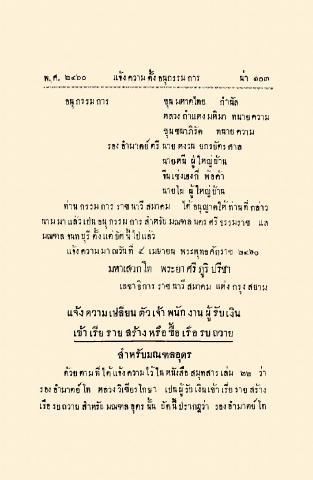 พ. ศ. ๒๔๖๐ แจ้ง ความ ตั้ง อนุกรรม การ น่า ๑๐๓
อนุ กรรม การ ขุน มหาดไทย กำนัล
หลวง กำแดง มติมา ทนาย ความ
ขุนชนาภิรัต ทนาย ความ
รอง อำมาตย์ ตรี นาย ผู้ใหญ่บ้าน
จีน เช่งเฮงกี่ พ่อค้า
นายใบ ผู้ ใหญ่บ้าน
ท่าน กรรม การ ราช นาวี สมาคม ได้ อนุญาตให้ ท่านที่ กล่าว
นาม มา แล้ว เปน อนุ กรรม การ สำหรับ มณฑล นคร ศรี ธรรมราช แล
มณฑล จันทบุรี ตั้ง แต่ บัด นี้ ไป แล้ว
แจ้ง ความ มา ณวัน ที่ ๕ เมษายน พระพุทธศักราช ๒๔๖๐
มหาเสวก โท พระยา ศรี ภูริ ปรีชา
เลขาธิการ ราช นาวี สมาคม แห่ง กรุง สยาม
แจ้ง ความ เปลี่ยน ตัว เจ้า พนัก งาน ผู้ รับ เงิน
เข้า เรี่ย ราย สร้าง หรือ ซื้อ เรือ รบ ถวาย
สำหรับมณฑลอุดร
ด้วย ตาม ที่ ได้ แจ้ง ความ ไว้ ใน หนังสือ สมุทสาร เล่ม ๒๒ ว่า
รอง อำมาตย์ โท หลวง วิเชียร โภษา เปน ผู้ รับ เงิน เข้า เรี่ย ราย สร้าง
เรือ รบ ถวาย สำหรับ มณฑล อุดร นั้น บัด นี้ ปรากฎว่า รอง อำมาตย์ โท